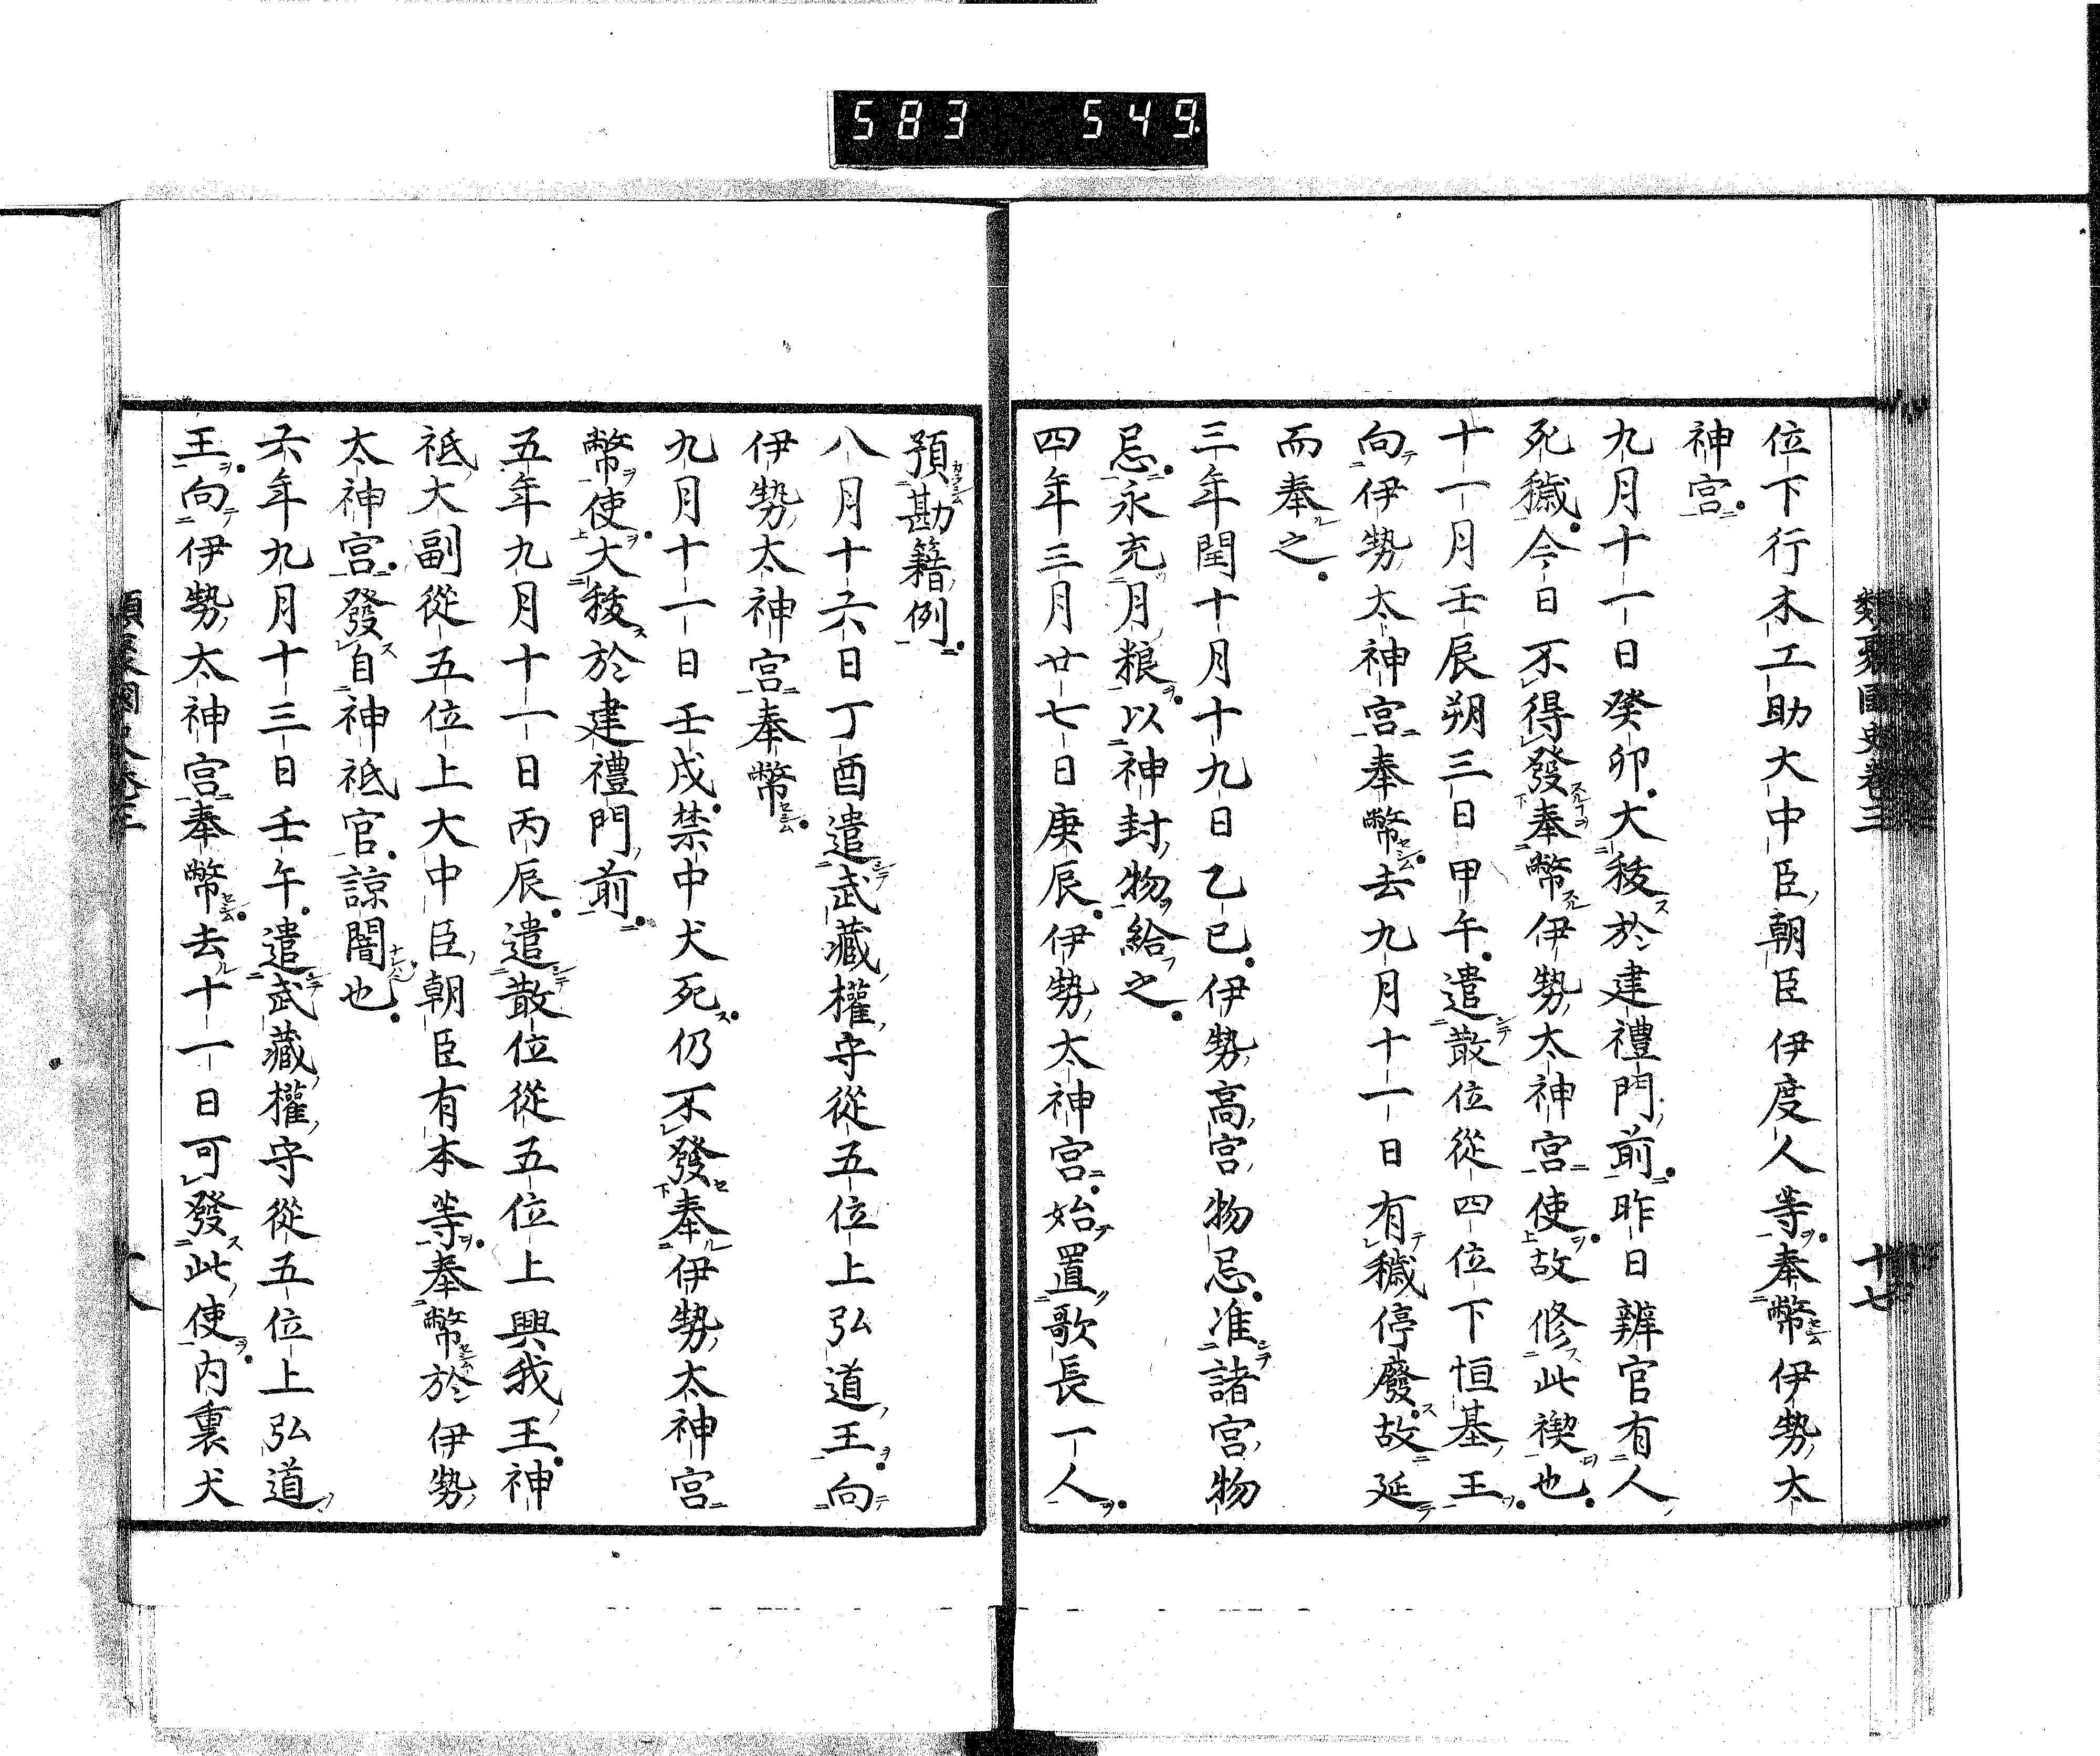 583 549
類聚國史卷三 十七
位下行木工助大中臣朝臣伊度人等奉幣伊勢太
神宮
九月十一日癸卯大秡於建禮門前昨日辨官有人
死穢今日不得發奉幣伊勢太神宮使故修此禊也
十一月壬辰朔三日甲午遣散位從四位下恒基王
向伊勢太神宮奉幣去九月十一日有穢停廢故延
而奉之
三年閏十月十九日乙巳伊勢高宮物忌准諸宮物
忌永充月粮以神封物給之
四年三月廿七日庚辰伊勢太神宮始置歌長一人
預勘籍例
八月十六日丁酉遣武藏權守從五位上弘道王向
伊勢太神宮奉幣
九月十一日壬戌禁中犬死仍不發奉伊勢太神宮
幣使大秡於建禮門前
五年九月十一日丙辰遣散位從五位上興我王神
祇大副從五位上大中臣朝臣有本等奉幣於伊勢
太神宮發自神祇官諒闇也
六年九月十三日壬午遣武藏權守從五位上弘道
王向伊勢太神宮奉幣去十一日可發此使内裏犬